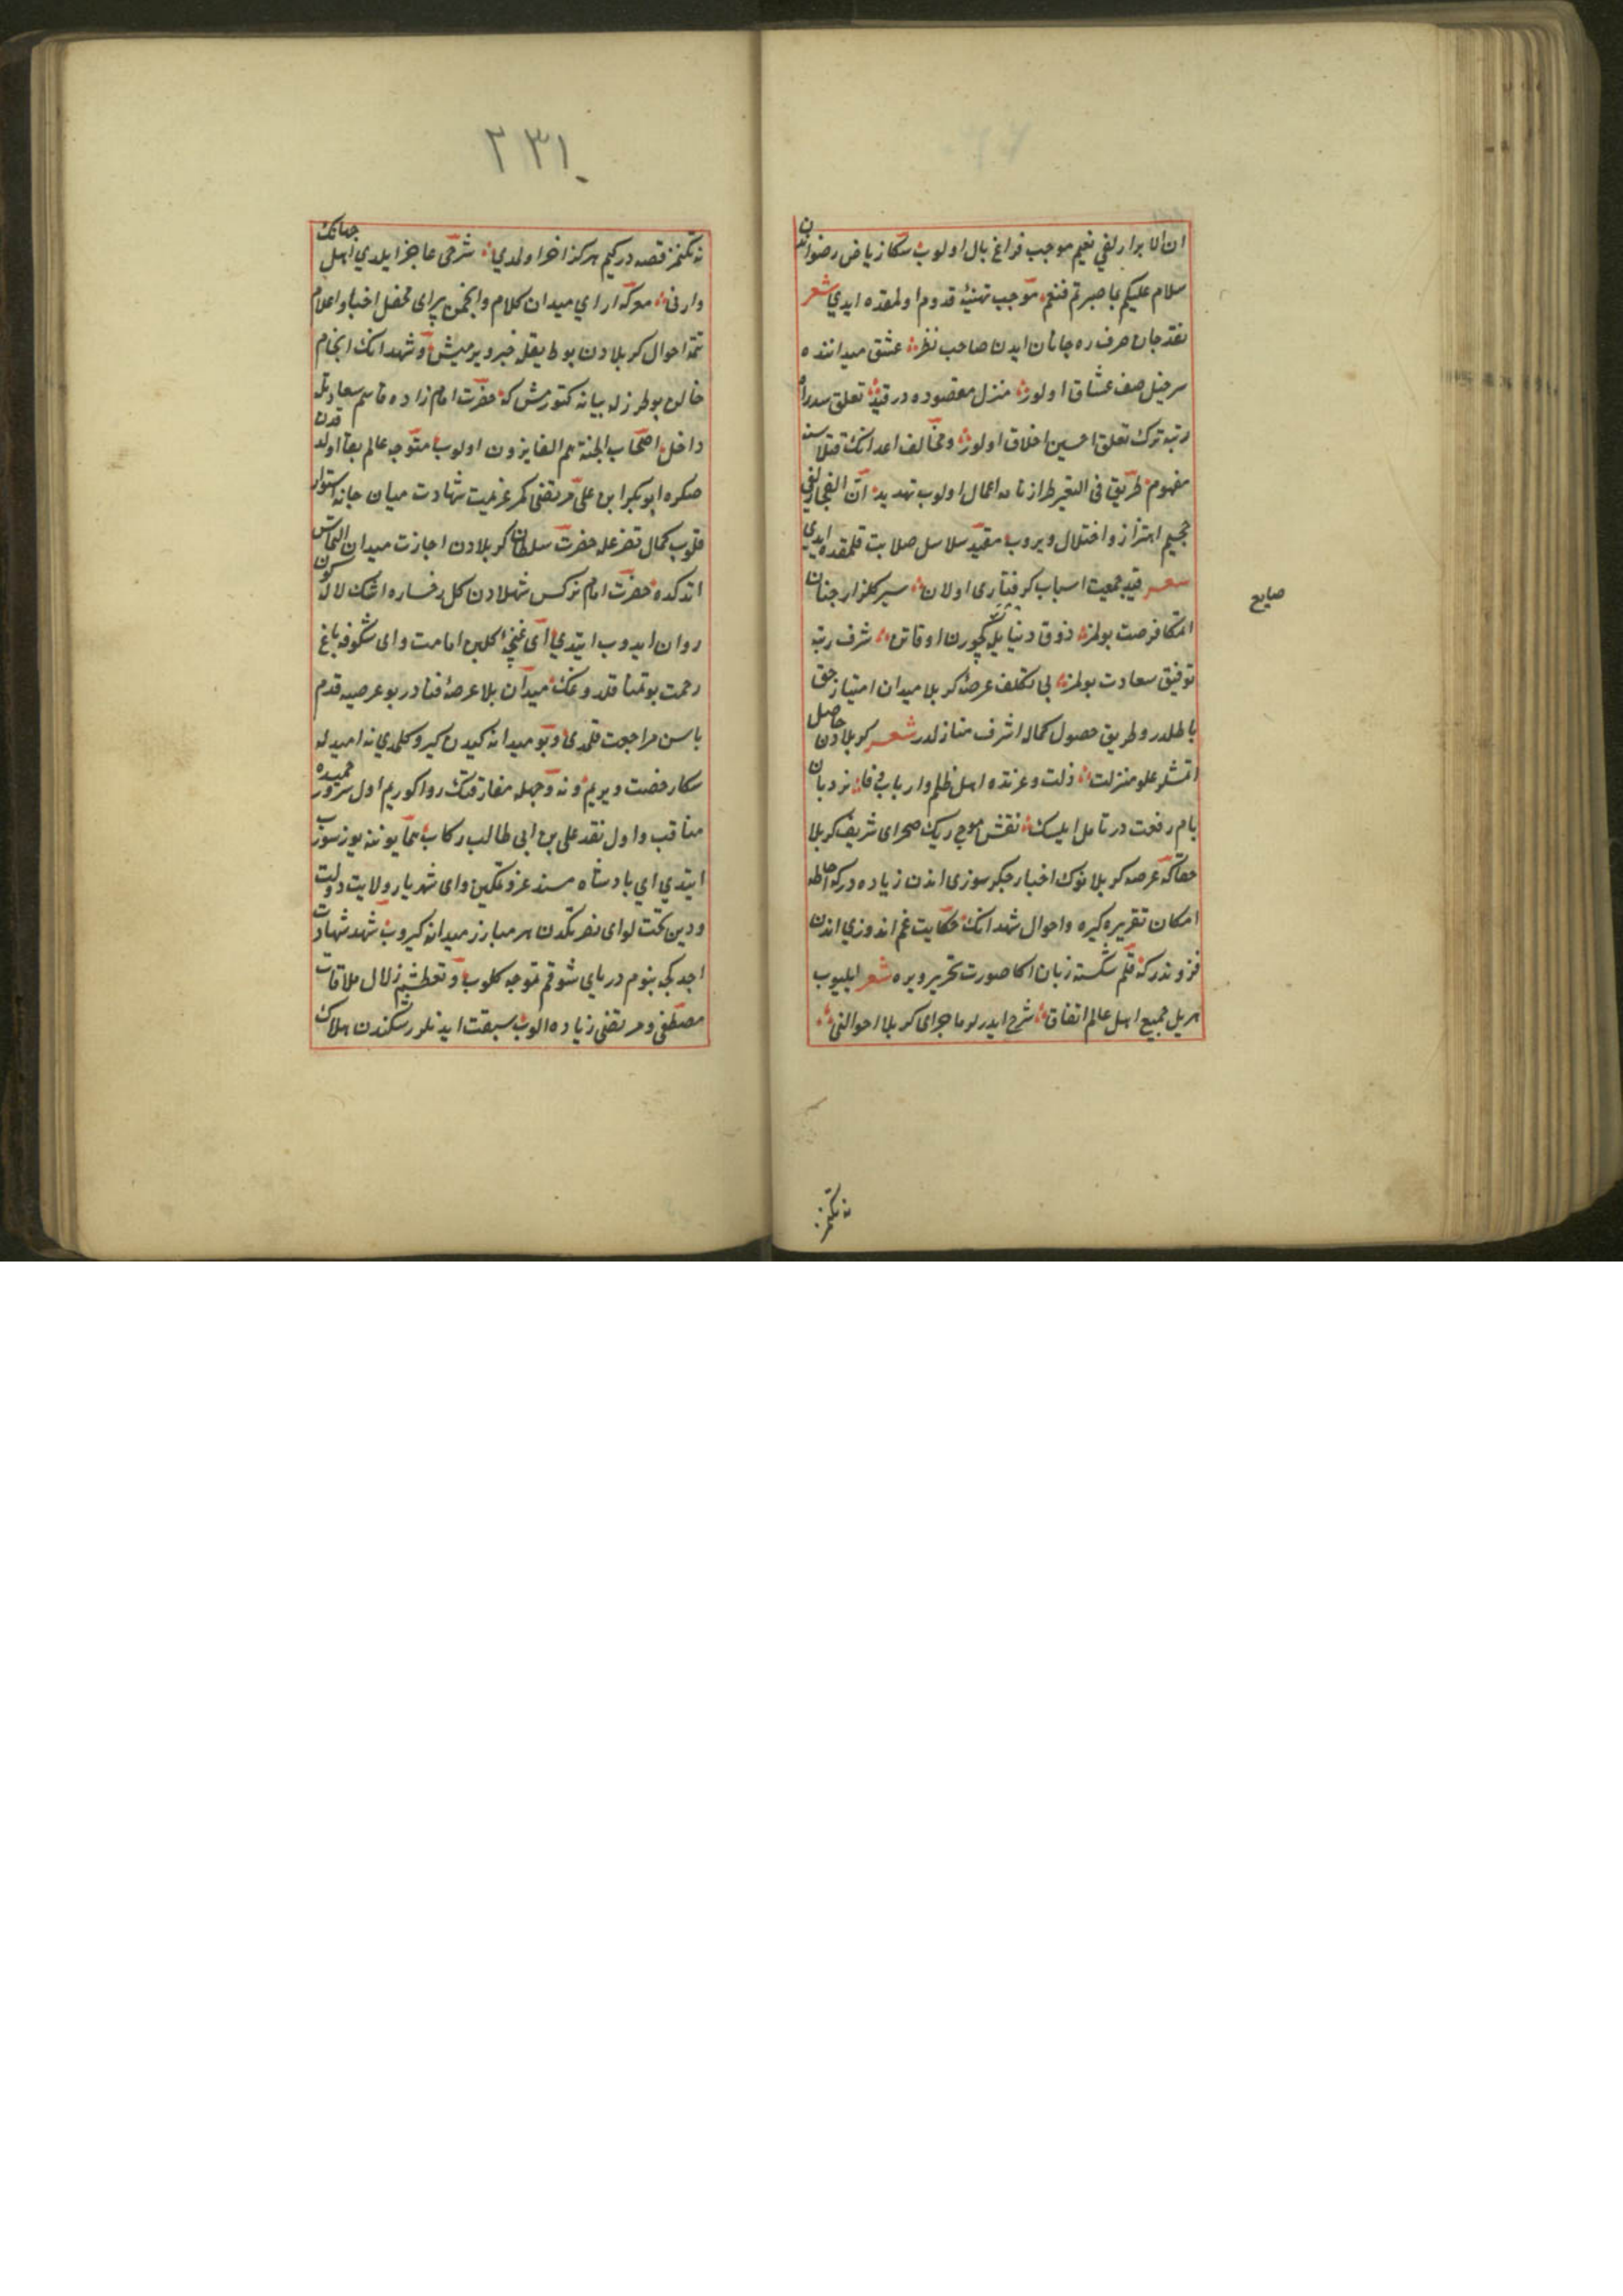 ان الابرار لفي نعيم موجب فراغ بال اولوب سكا ز رياض رضوان
سلام عليكم بما صبرتم فنعم موجب تهنيه قدوم اولمقده ايدي شعر
نقد جان صرف ره جانان ايدن صاحب نظر عشق ميداننده
سرخيل صف عشاق اولور منزل مقصوده در قيد تعلق سدراه
رتبه ترك تعلق احسن اخلاق اولور ومخالف اعدانك قتلاسنه
مفهوم طريق في السعير طراز نامه اعمال اولوب تهديد ان الفجار لفي
جحيم اهتزاز واختلال ويروب مقيد سلاسل صلابت قلمقده ايدي
شعر قيد جمعيت اسباب گرفتاری اولان سير گلزار جنان
اتمكا فرصت بولمز ذوق دنيا يله گچورن اوقاتن شرف رتبه
توفيق سعادت بولمز بی تكلف عرصه كربلا ميدان امتياز حق
باطلدر وطريق حصول كماله اشرف منازلدر شعر كربلادن حاصل
اتمشلر علو منزلت ذلت وعزتده اهل ظلم وارباب وفا نردبان
بام رفعت در تامل ايلسك نقش موج ريك صحرای شريف كربلا
حقاكه عرصه كربلانوك اخبار جگرسوزی اندن زياده دركه احاطه
امكان تقريره گيره واحوال شهدانك حكايت غم اندوزی اندن
فزوندركه قلم شكسته زبان اكا صورت تحرير ويره شعر ايليوب
بربريل جميع اهل عالم اتفاق شرح ايدرلر ماجرای كربلا احوالنی
صايح
نه تكنمز
٢٣١
نه تكنمز قصه در كيم هركز اخر اولمدي شرحی عاجز ايلدي اهل جهانك
وارنی معركه ارای ميدان كلام وانجمن پيرای محفل اخبار واعلام
تتمه احوال كربلادن بو طريقله خبر ويرميش وشهدانك انجام
حالن بو طرزله بيانه كتورمش كه حضرت امام زاده قاسم سعادتله
داخل اصحاب الجنة هم الفايزون اولوب متوجه عالم بقا اولدقدن
صكره ابوبكر ابن علی مرتضی كمر عزيمت شهادت ميان جانه استوار
قلوب كمال تضرعله حضرت سلطان كربلادن اجازت ميدان التماس
اتدكده حضرت امام نركس شهلادن گل رخساره اشك لاله گون
روان ايدوب ايتدي ای غنچه گلبن امامت وای شكوفه باغ
رحمت بو تمنا قلدوغك ميدان بلا عرصه فنادر بو عرصيه قدم
باسن مراجعت قلمدی وبو ميدانه گيدن گيرو گلمدي نه اميدله
سكا رخصت ويريم ونه وجهله مفارقتك روا گوريم اول سرور حميده
مناقب واول نقد علی بن ابی طالب ركاب همايوننه يوز سوروب
ايتدي اي پادشاه مسند عز وتمكين وای شهريار ولايت دولت
ودين تحت لوای نصرتكدن هر مبارز ميدانه گيروب شهد شهادت
اجدكجه بنوم دريای شوقم تموجه گلوب وتعطشم زلال ملاقات
مصطفی ومرتضی زياده الوب سبقت ايدنلر رشكندن هلاك